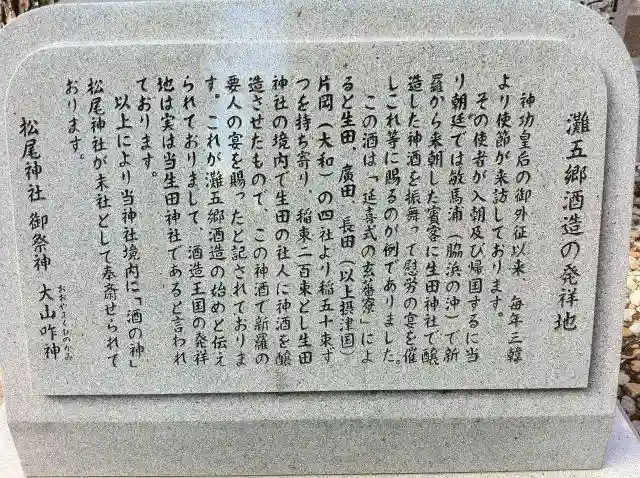 灘五郷酒造の発祥地
神功皇后の御外征以来、毎年三韓
より使節が来訪しております。
その使者が入朝及び帰国するに当
り朝廷では敏馬浦(脇浜の沖)で新
羅から来朝した賓客に生田神社で醸
造した神酒を振舞って慰労の宴を催
しこれ等に賜るのが例でありました。
この酒は「延喜式の玄蕃寮」によ
ると生田 廣田 長田(以上摂津国)
片岡(大和)の四社より稲五十束ず
つを持ち寄り、稲束二百束とし生田
神社の境内で生田の社人に神酒を醸
造させたもので、この神酒で新羅の
要人の宴を賜ったと記されておりま
す。これが灘五郷酒造の始めと伝え
られておりまして、酒造王国の発祥
地は実は当生田神社であると言われ
ております。
以上により当神社境内に「酒の神」
松尾神社が末社として奉斎せられて
おります。
松尾神社 御祭神 大山咋神
おおやまくひのかみ